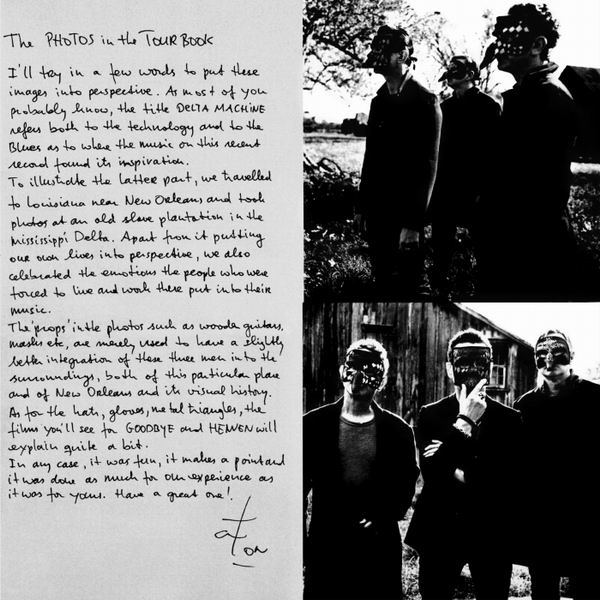 The PHOTOS in the TOURBOOK
I'll try in a few words to put these
images into perspective. As most of you
probably know, the title DELTA MACHINE
refers both to the technology and to the
Blues as to where the music on this recent
record found its inspiration.
To illustrate the latter part, we travelled
to Louisiana near New Orleans and took
photos at an old slave plantation in the
Mississippi Delta. Apart from it putting
our own lives into perspective, we also
celebrated the emotions the people who were
forced to live and work there put into their
music.
The 'props' in the photos such as wooden guitars,
masks etc, are merely used to have a slightly
better integration of these three men into the
surroundings, both of this particular place
and of New Orleans and its visual history.
As for the hats, gloves, metal triangles, the
films you'll see for GOODBYE and HEAVEN will
explain quite a bit.
In any case, it was fun, it makes a point and
it was done as much for our experience as
it was for yours. Have a great one!